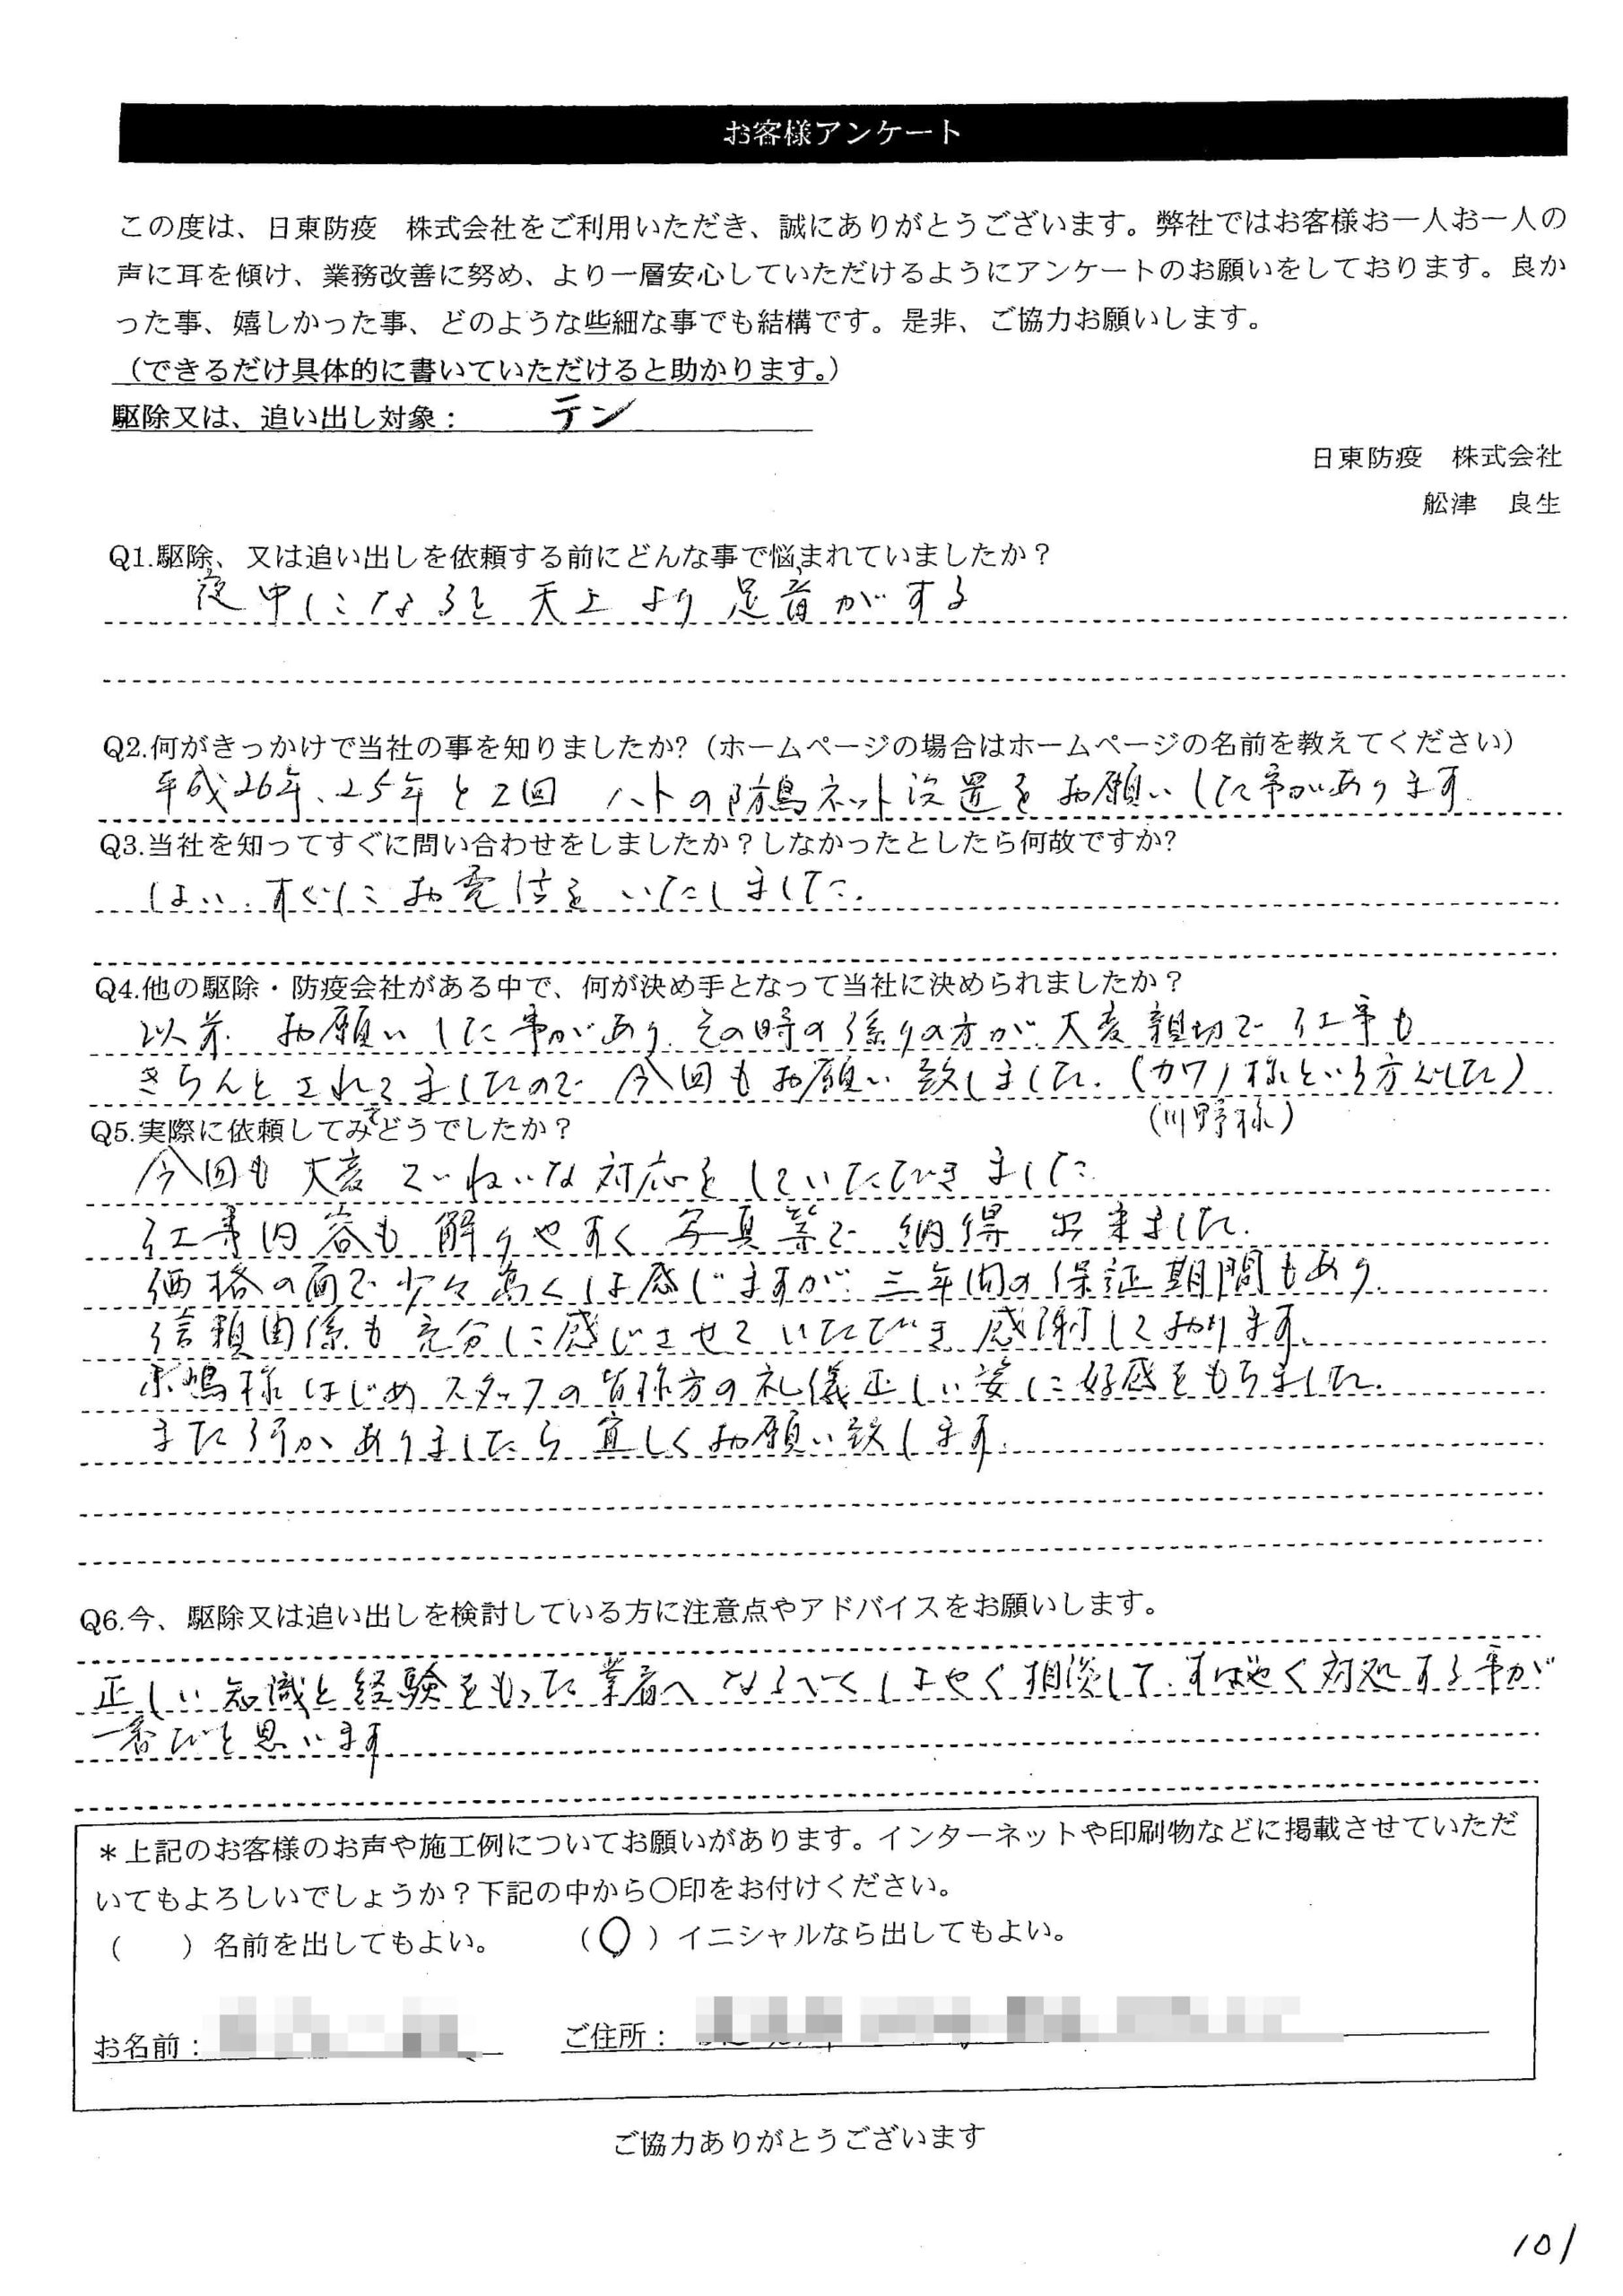 お客様アンケート
この度は、日東防疫　株式会社をご利用いただき、誠にありがとうございます。弊社ではお客様お一人お一人の
声に耳を傾け、業務改善に努め、より一層安心していただけるようにアンケートのお願いをしております。良か
った事、嬉しかった事、どのような些細な事でも結構です。是非、ご協力お願いします。
（できるだけ具体的に書いていただけると助かります。）
駆除又は、追い出し対象：　テン
日東防疫　株式会社
舩津　良生
Q1.駆除、又は追い出しを依頼する前にどんな事で悩まれていましたか？
夜中になると天上より足音がする
Q2.何がきっかけで当社の事を知りましたか?（ホームページの場合はホームページの名前を教えてください）
平成26年、25年と2回　ハトの防鳥ネット設置をお願いした事があります.
Q3.当社を知ってすぐに問い合わせをしましたか？しなかったとしたら何故ですか?
はい、すぐにお電話をいたしました.
Q4.他の駆除・防疫会社がある中で、何が決め手となって当社に決められましたか？
以前、お願いした事があり、その時の係りの方が、大変親切で工事も
きちんとされてましたので今回もお願い致しました.（カワノ様という方でした）
（川野様）
Q5.実際に依頼してみてどうでしたか？
今回も大変ていねいな対応をしていただきました.
工事内容も解りやすく写真等で納得出来ました.
価格の面で少々高くは感じますが、三年間の保証期間もあり.
信頼関係も充分に感じさせていただき感謝しております.
嶋様はじめスタッフの皆様方の礼儀正しい姿に好感をもちました.
また何かありましたら宜しくお願い致します.
Q6.今、駆除又は追い出しを検討している方に注意点やアドバイスをお願いします。
正しい知識と経験をもった業者へなるべくはやく相談して、すばやく対処する事が
一番だと思います
＊上記のお客様のお声や施工例についてお願いがあります。インターネットや印刷物などに掲載させていただ
いてもよろしいでしょうか？下記の中から〇印をお付けください。
（　　）名前を出してもよい。　　（〇）イニシャルなら出してもよい。
お名前：　　ご住所：
ご協力ありがとうございます
101